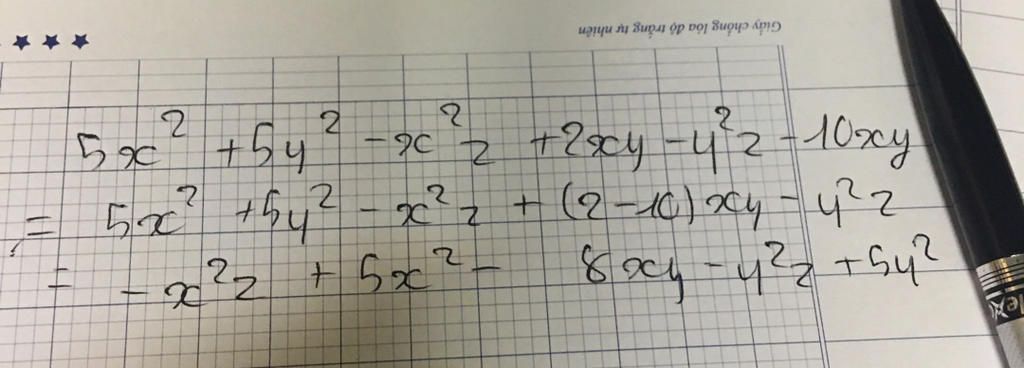 Giấy chống lóa độ trắng tự nhiên
5x² + 5y² - x²z + 2xy - y²z - 10xy
= 5x² + 5y² - x²z + (2 - 10)xy - y²z
= - x²z + 5x² - 8xy - y²z + 5y²